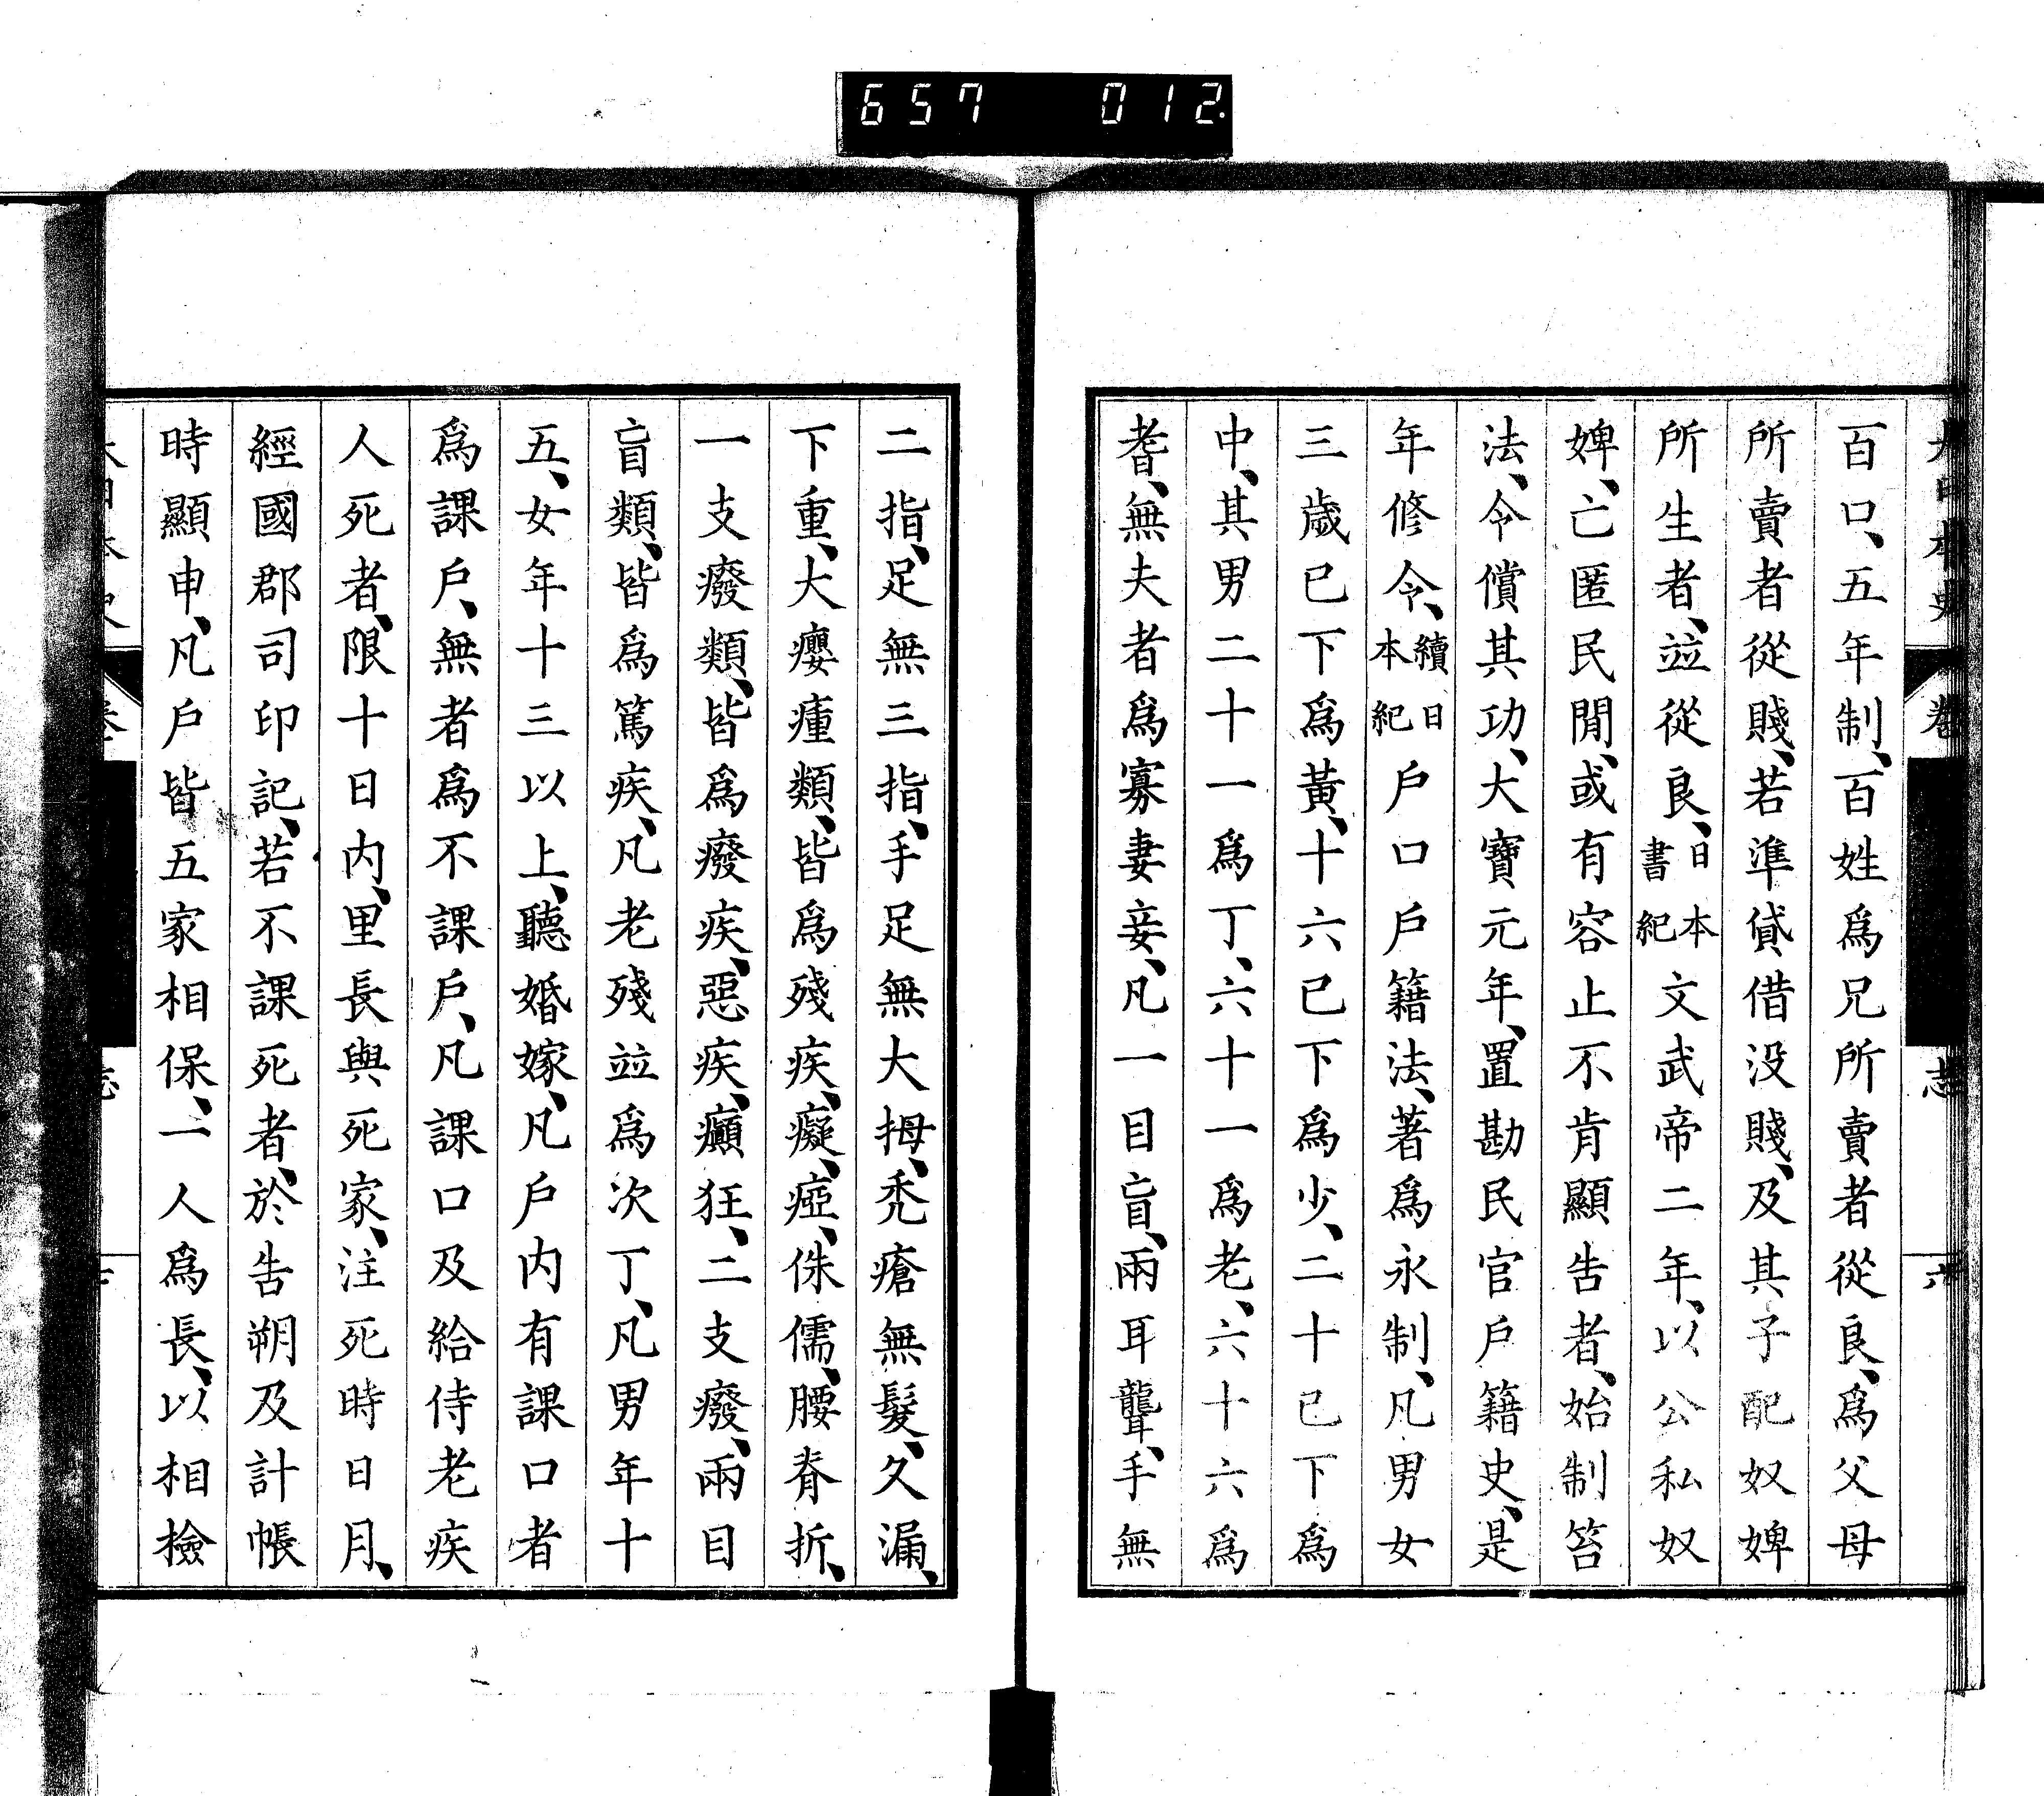 657 012
百口、五年制、百姓爲兄所賣者從良、爲父母
所賣者從賤、若準貸借没賤、及其子配奴婢
所生者、竝從良、日本書紀文武帝二年、以公私奴
婢、亡匿民閒、或有容止不肯顯告者、始制笞
法、令償其功、大寶元年、置勘民官戶籍史、是
年修令、續日本紀戶口戶籍法、著爲永制、凡男女
三歲已下爲黃、十六已下爲少、二十已下爲
中、其男二十一爲丁、六十一爲老、六十六爲
耆、無夫者爲寡妻妾、凡一目盲、兩耳聾、手無
二指、足無三指、手足無大拇、禿瘡無髮、久漏、
下重、大癭瘇類、皆爲殘疾、癡、瘂、侏儒、腰脊折、
一支癈類、皆爲癈疾、惡疾、癲狂、二支癈、兩目
盲類、皆爲篤疾、凡老殘竝爲次丁、凡男年十
五、女年十三以上、聽婚嫁、凡戶内有課口者
爲課戶、無者爲不課戶、凡課口及給侍老疾
人死者、限十日内、里長與死家、注死時日月、
經國郡司印記、若不課死者、於告朔及計帳
時顯申、凡戶皆五家相保、一人爲長、以相檢